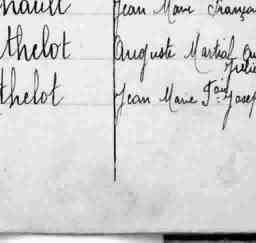 nault Jean Marie François
thelot Auguste Martial
thelot Jean Marie Joseph